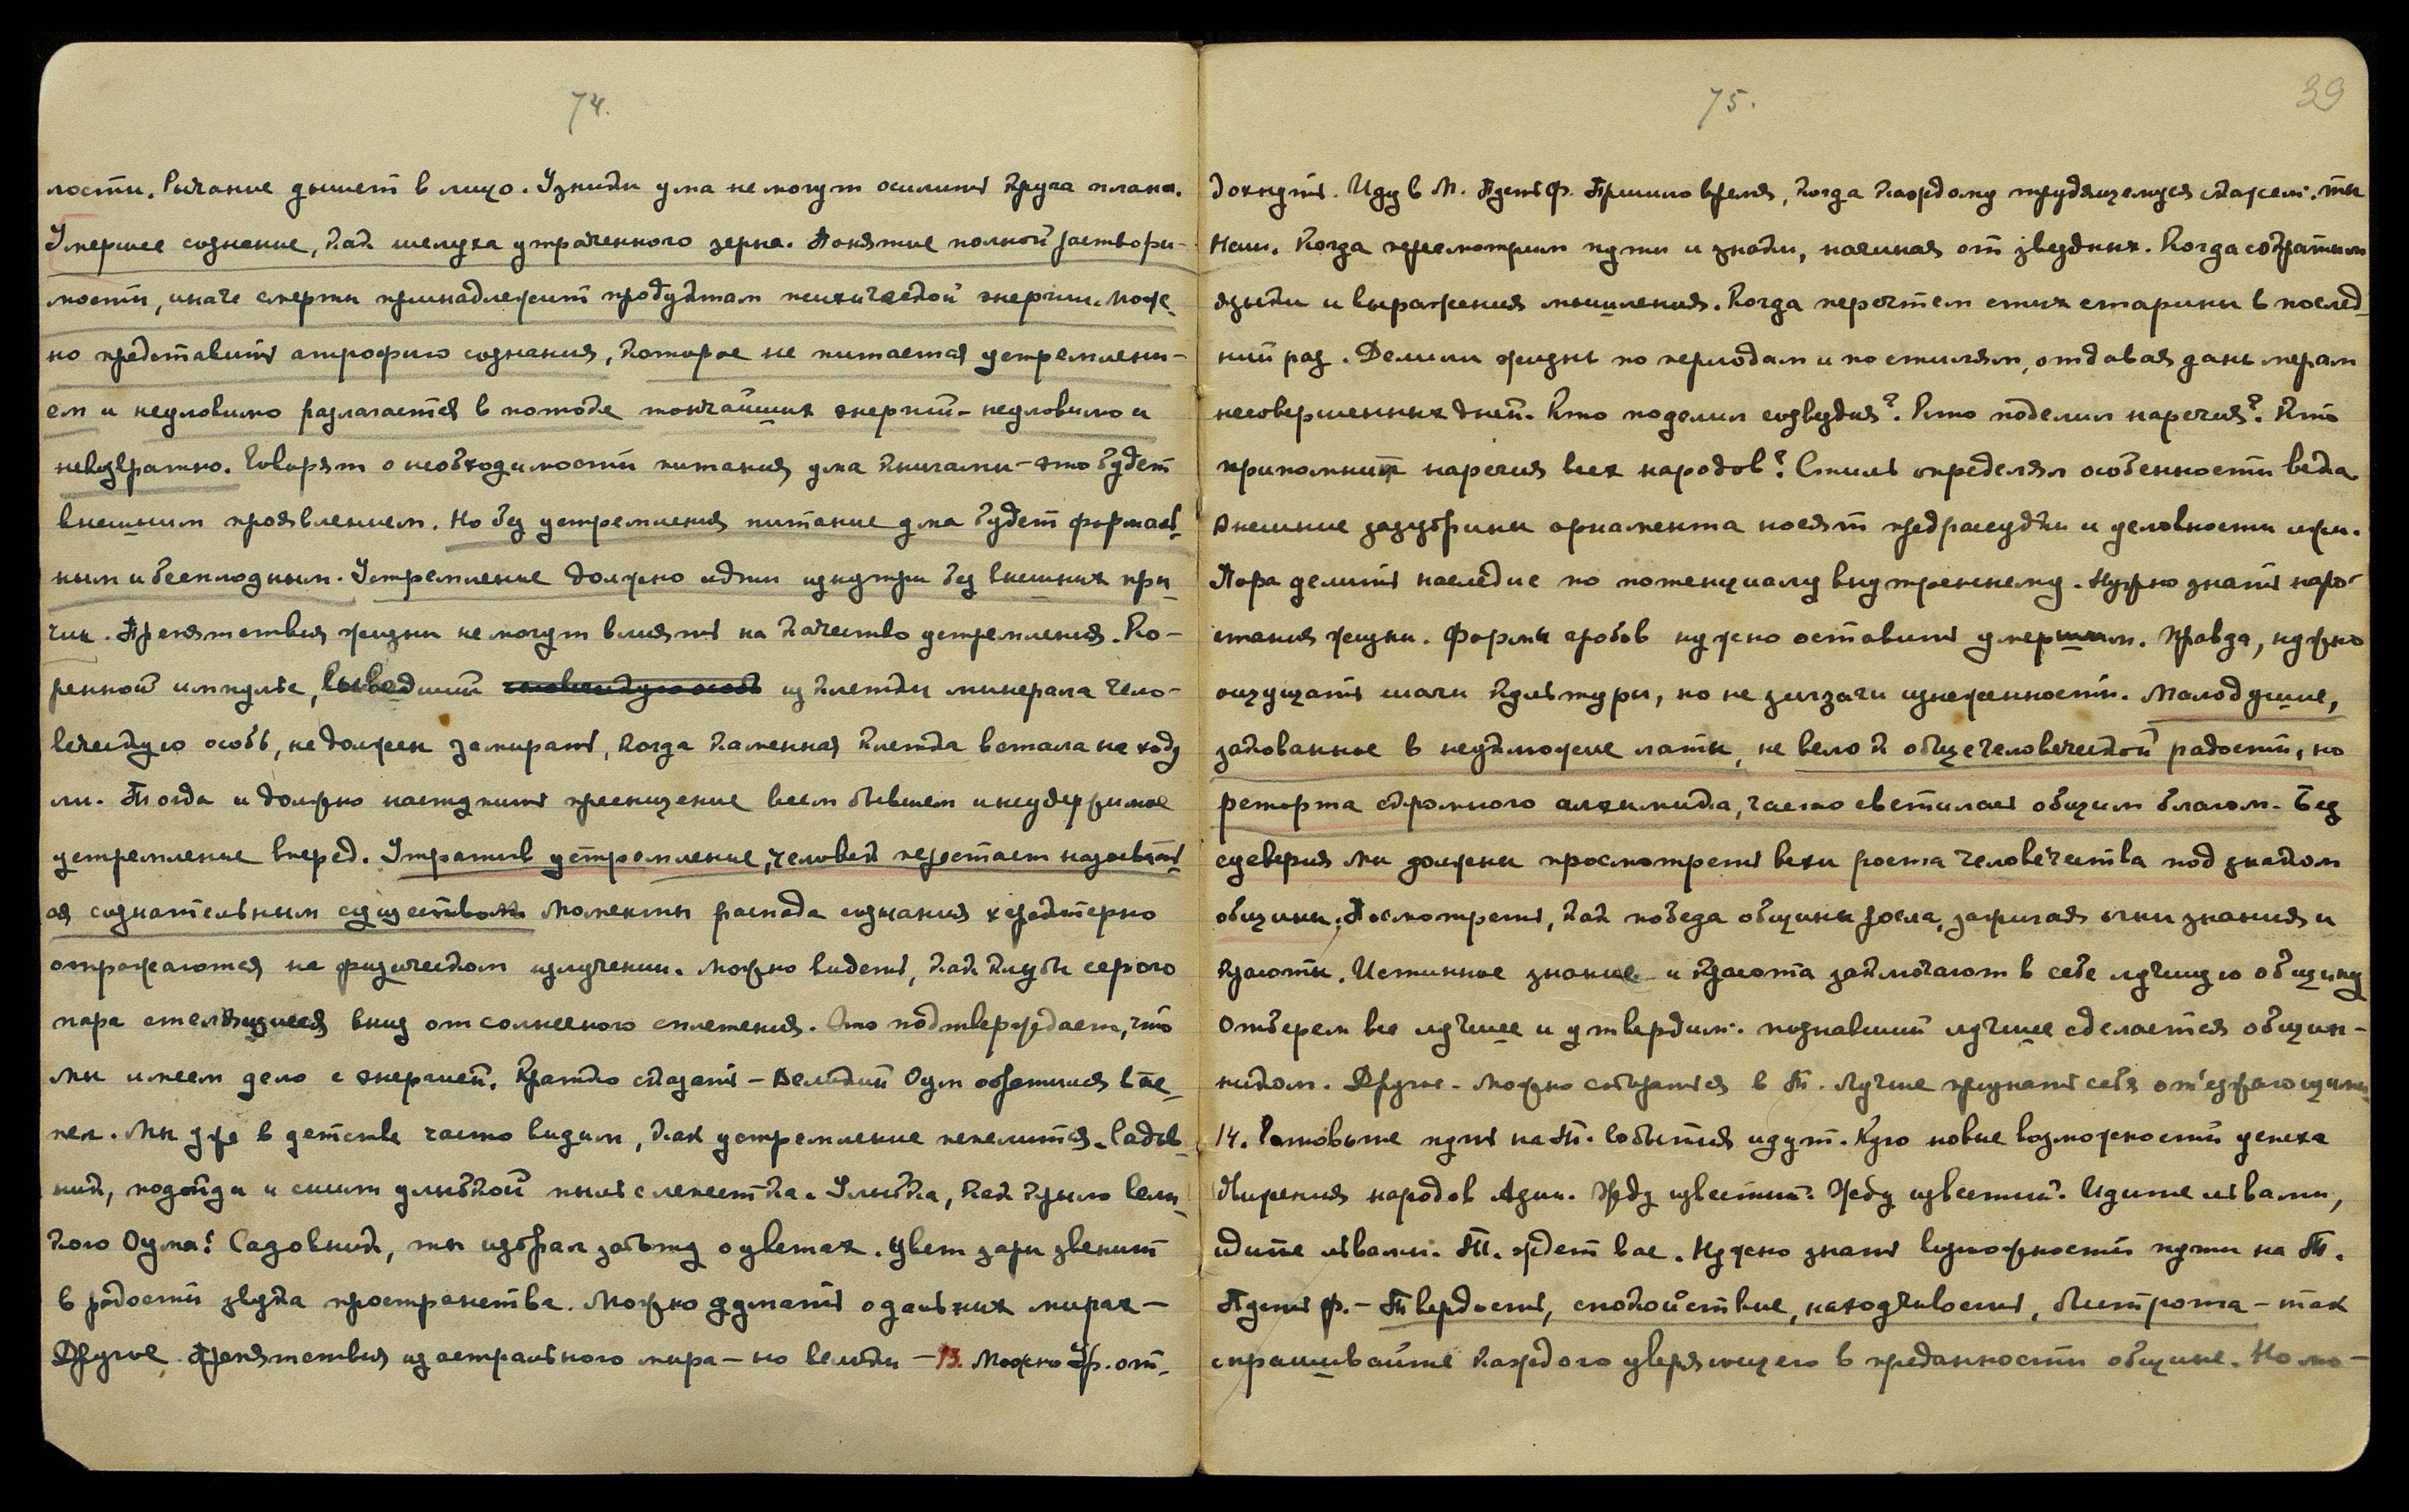 74.
лости. Рычание дышет в лицо. Узники ума не могут осилить круга плана.
Умершее сознание, как шелуха утраченного зерна. Понятие полной раствори-
мости, иначе смерти принадлежит продуктам психической энергии. Мож-
но представить атрофию сознания, которое не питается устремлени-
ем и неуловимо разлагается в потоке тончайших энергий – неуловимо и
невозвратно. Говорят о необходимости питания ума книгами – это будет
внешним проявлением. Но без устремления питание ума будет формаль-
ным и бесплодным. Устремление должно идти изнутри без внешних при-
чин. Препятствия жизни не могут влиять на качество устремления. Ко-
ренной импульс, выведший из клетки минерала чело-
веческую особь, не должен замирать, когда каменная клетка встала на ход
ли. Тогда и должно наступить пресыщение всем бывшем и неудержимое
устремление вперед. Утратив устремление, человек перестает называть-
ся сознательным существом. Моменты распада сознания характерно
отражаются на физическом излучении. Можно видеть, как клубы серого
пара стелющиеся вниз от солнечного сплетения. Это подтверждает, что
мы имеем дело с энергией. Кратко сказать – Великий Оум обратился в пе-
пел. Мы уже в детстве часто видим, как устремление пепелится. Садов-
ник, подойди и сними улыбкой пыль с лепестка. Улыбка, как крыло вели-
кого Оума! Садовник, ты избрал заботу о цветах. Цвет зари звенит
в радости звука пространства. Можно думать о дальних мирах –
Другое. Препятствия из астрального мира – но велики – 13. Можно Ур. от-
75.
39
дохнуть. Иду в М. Путь Ф. Пришло время, когда каждому трудящемуся скажем: ты
Наш. Когда пересмотрим пути и знаки, начиная от звездных. Когда сократим
языки и выражения мышления. Когда перечтем стих старины в послед-
ний раз. Делили жизнь по периодам и по стилям, отдавая дань мерам
несовершенных дней. Кто поделил созвездия? Кто поделил наречия? Кто
припомнит наречия всех народов? Стиль определял особенности века
Внешние зазубрины орнамента носят предрассудки и условности лжи.
Пора делить наследие по потенциалу внутреннему. Нужно знать наро-
стания жизни. Формы гробов нужно оставить умершим. Правда, нужно
ощущать шаги культуры, но не зигзаги изнеженности. Малодушие,
закованное в неуклюжие латы, не вело к общечеловеческой радости, но
реторта скромного алхимика, часто светилась общим благом. Без
суеверия мы должны просмотреть вехи роста человечества под знаком
общины. Посмотреть, как победа общины росла, зажигая огни знания и
красоты. Истинное знание и красота заключают в себе лучшую общину
Отберем все лучшее и утвердим: познавший лучшее сделается общин-
ником. Другое. Можно собираться в Т. Лучше признать себя отъезжающими
14. Готовьте путь на Т. События идут. Кую новые возможности успеха
Мирения народов Азии. Жду известий. Жду известий. Идите львами,
идите львами. Т. ждет вас. Нужно знать возможности пути на Т.
Путь Ф. – Твердость, спокойствие, находчивость, быстрота – так
спрашивайте каждого уверяющего в преданности общине. Но мо-